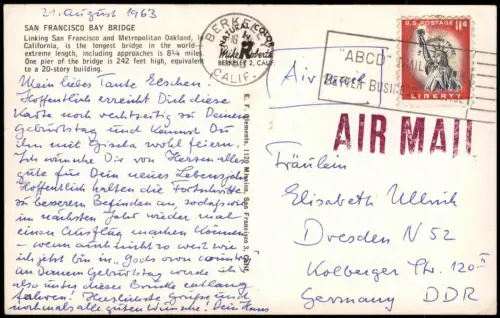 21. August 1963
SAN FRANCISCO BAY BRIDGE
Linking San Francisco and Metropolitan Oakland,
California, is the longest bridge in the world—
extreme length, including approaches is 8¼ miles.
One pier of the bridge is 242 feet high, equivalent
to a 20-story building.
Mein liebes Tante Elschen.
Hoffentlich erreicht Dich diese
Karte noch rechtzeitig zu Deinem
Geburtstag und kannst Du
ihn mit Gisela wohl feiern.
Ich wünsche Dir von Herzen alles
gute für Dein neues Lebensjahr
Hoffentlich halten die Fortschritte
zu besserem Befinden an, sodass wir
im nächsten Jahr wieder mal
einen Ausflug machen können
– wenn auch nicht so weit wie
ich jetzt bin in "Gods own country"
An Deinem Geburtstag werde ich
also unter dieser Brücke entlang
fahren! Herzlichste Grüsse und
nochmals alle guten Wünsche! Dein Hans
E. F. Clements, 1120 Mission, San Francisco 3, Calif.
NATURAL COLOR
by
Mike Roberts
BERKELEY 2, CALIF.
BERKELEY
CALIF.
"ABCD" MAIL
BETTER BUSINESS
U.S. POSTAGE 11¢
LIBERTY
Air mail
AIR MAIL
Fräulein
Elisabeth Ullrich
Dresden N 52
Kolberger Str. 120 II
Germany DDR